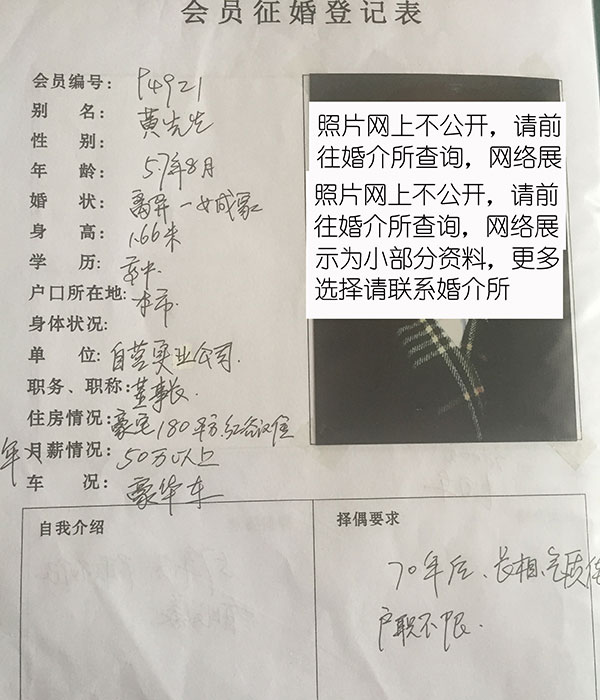 会员征婚登记表
会员编号: P4921
别 名: 黄先生
性 别:
年 龄: 57年8月
婚 状: 离异 一女成家
身 高: 1.66米
学 历: 高中
户口所在地: 本市.
身体状况:
单 位: 自营实业公司.
职务、职称: 董事长
住房情况: 豪宅180平方.红谷滩住
年入
月薪情况: 50万以上
车 况: 豪华车
照片网上不公开，请前
往婚介所查询，网络展
照片网上不公开，请前
往婚介所查询，网络展
示为小部分资料，更多
选择请联系婚介所
自我介绍
择偶要求
70年后、长相.气质佳
户职不限.